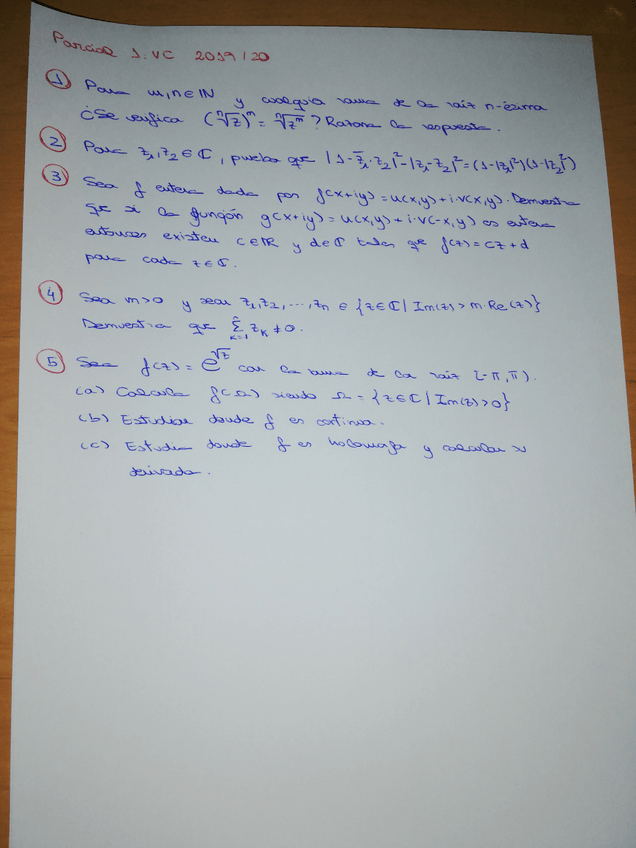 Parcial 1. VC 2019/20
① Para m,n∈ℕ y cualquier rama de la raíz n-ésima
¿Se verifica (ⁿ√z)^m = ⁿ√(z^m)? Razona la respuesta.
② Para z₁,z₂∈ℂ, prueba que |1-z̄₁·z₂|²-|z₁-z₂|²=(1-|z₁|²)(1-|z₂|²)
③ Sea f entera dada por f(x+iy)=u(x,y)+i·v(x,y). Demuestra
que si la función g(x+iy)=u(x,y)+i·v(-x,y) es entera
entonces existen c∈ℝ y d∈ℂ tales que f(z)=cz+d
para cada z∈ℂ.
④ Sea m>0 y sean z₁,z₂,...,zₙ ∈ {z∈ℂ| Im(z)>m·Re(z)}
Demuestra que Σₖ₌₁ⁿ zₖ≠0.
⑤ Sea f(z)=e^√z con la rama de la raíz [-π,π).
(a) Calcula f(Ω) siendo Ω={z∈ℂ| Im(z)>0}
(b) Estudiar donde f es continua.
(c) Estudia donde f es holomorfa y calcular su
derivada.